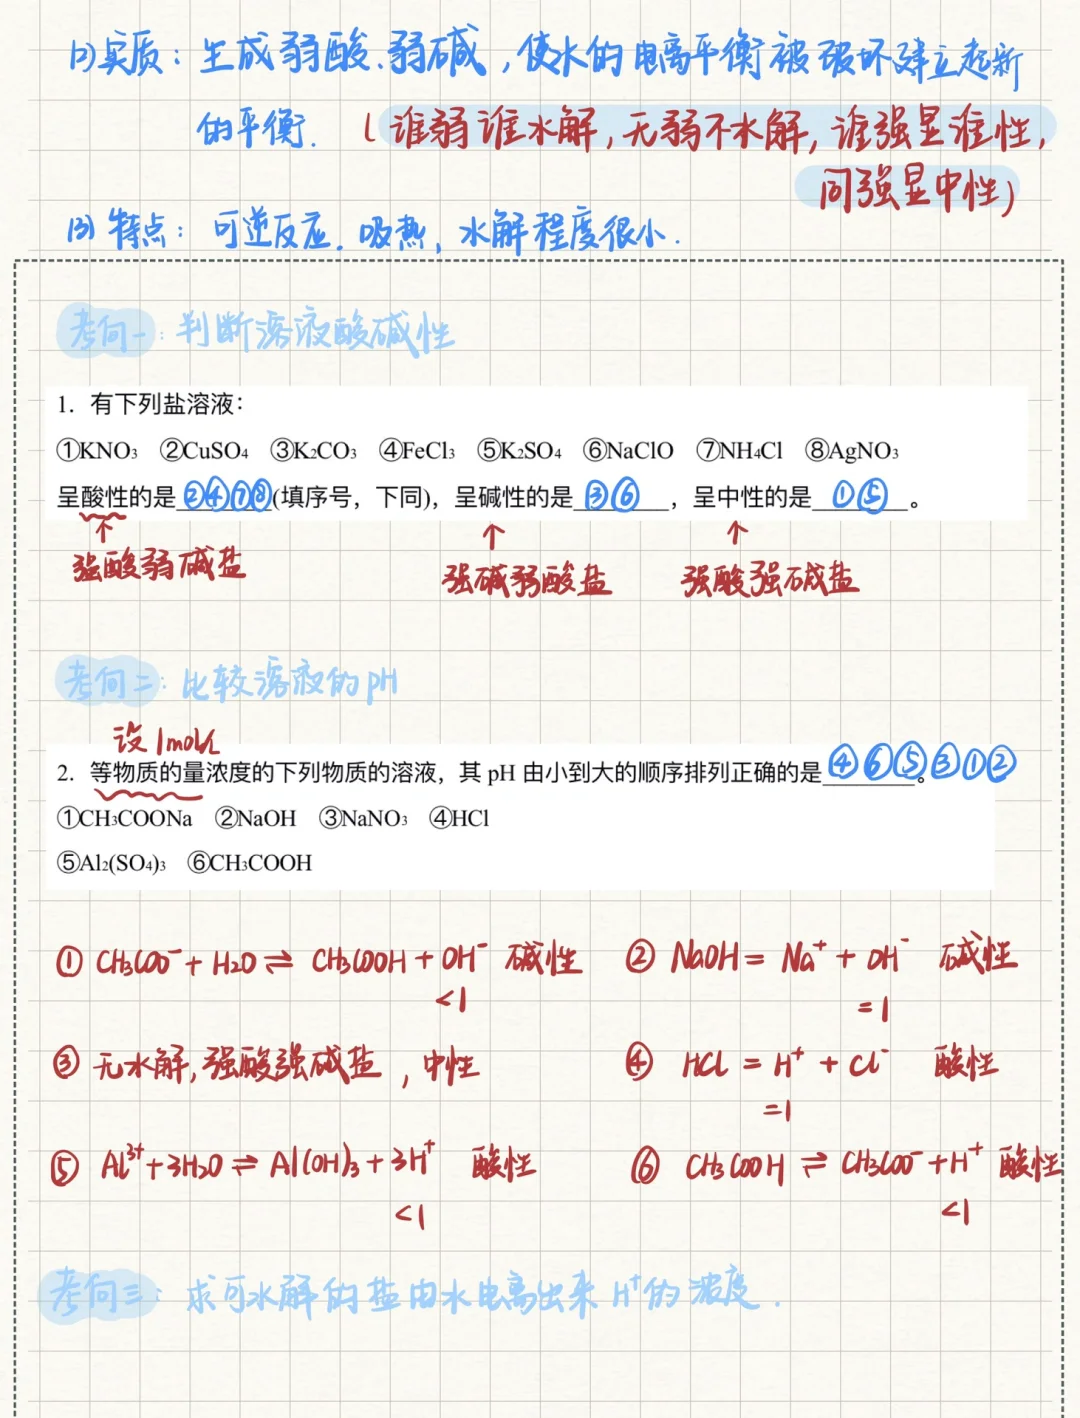 (2)实质：生成弱酸、弱碱，使水的电离平衡被破坏建立起新
的平衡. (谁弱谁水解,无弱不水解,谁强显谁性,
同强显中性)
(3)特点：可逆反应. 吸热, 水解程度很小.
考向一：判断溶液酸碱性
1．有下列盐溶液：
①KNO₃ ②CuSO₄ ③K₂CO₃ ④FeCl₃ ⑤K₂SO₄ ⑥NaClO ⑦NH₄Cl ⑧AgNO₃
呈酸性的是②④⑦⑧(填序号，下同)，呈碱性的是③⑥，呈中性的是①⑤。
↑ ↑ ↑
强酸弱碱盐 强碱弱酸盐 强酸强碱盐
考向二：比较溶液的pH
设1mol/L
2．等物质的量浓度的下列物质的溶液，其 pH 由小到大的顺序排列正确的是④⑥⑤③①②。
①CH₃COONa ②NaOH ③NaNO₃ ④HCl
⑤Al₂(SO₄)₃ ⑥CH₃COOH
① CH₃COO⁻ + H₂O ⇌ CH₃COOH + OH⁻ 碱性 ② NaOH = Na⁺ + OH⁻ 碱性
<1 =1
③ 无水解,强酸强碱盐,中性 ④ HCl = H⁺ + Cl⁻ 酸性
=1
⑤ Al³⁺+3H₂O ⇌ Al(OH)₃+3H⁺ 酸性 ⑥ CH₃COOH ⇌ CH₃COO⁻+H⁺ 酸性
<1 <1
考向三：求可水解的盐由水电离出来H⁺的浓度.